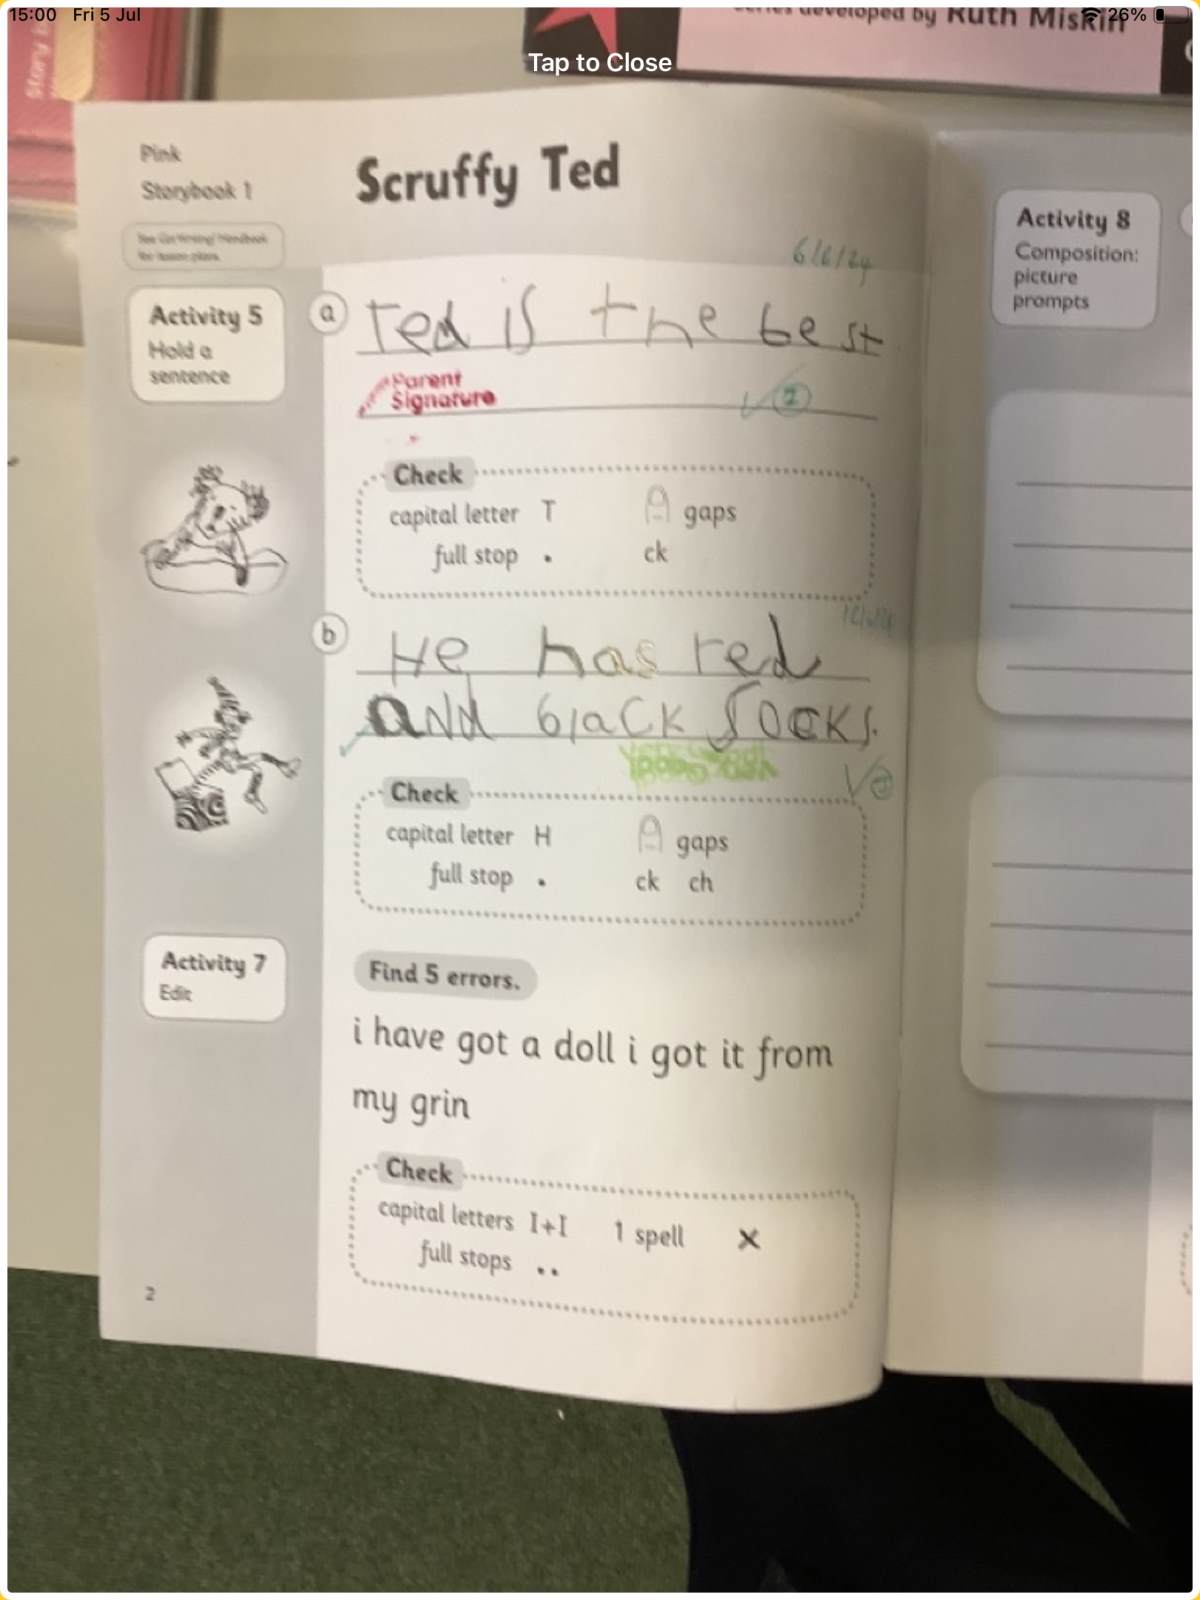 15:00 Fri 5 Jul
26%
Tap to Close
series developed by Ruth Miskin
Story
Pink
Storybook 1
Scruffy Ted
See Get Writing! Handbook
for lesson plans
6/6/24
Activity 5
Hold a
sentence
a
Ted is the best
Parent
Signature
2
Check
capital letter T
gaps
full stop .
ck
b
He has red
and black socks.
Check
capital letter H
gaps
full stop .
ck ch
Activity 7
Edit
Find 5 errors.
i have got a doll i got it from
my grin
Check
capital letters I+I
1 spell X
full stops ..
2
Activity 8
Composition:
picture
prompts